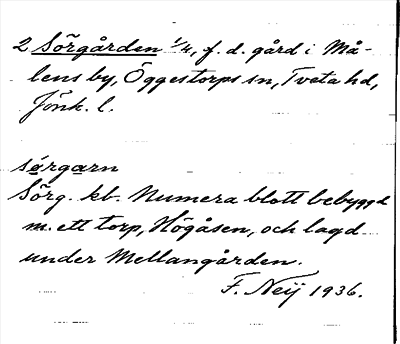 2 Sörgården 1/4, f. d. gård i Må-
lens by, Öggestorps sn, Tveta hd,
Jönk. l.
sö́rgarn
Sörg. kb. Numera blott bebyggd
m. ett torp, Högåsen, och lagd
under Mellangården.
F. Neij 1936.